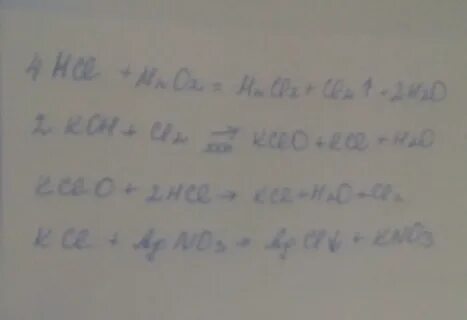 4 HCl + MnO2 = MnCl2 + Cl2↑ + 2H2O
2 KOH + Cl2 → KClO + KCl + H2O
KClO + 2HCl → KCl + H2O + Cl2
KCl + AgNO3 → AgCl↓ + KNO3